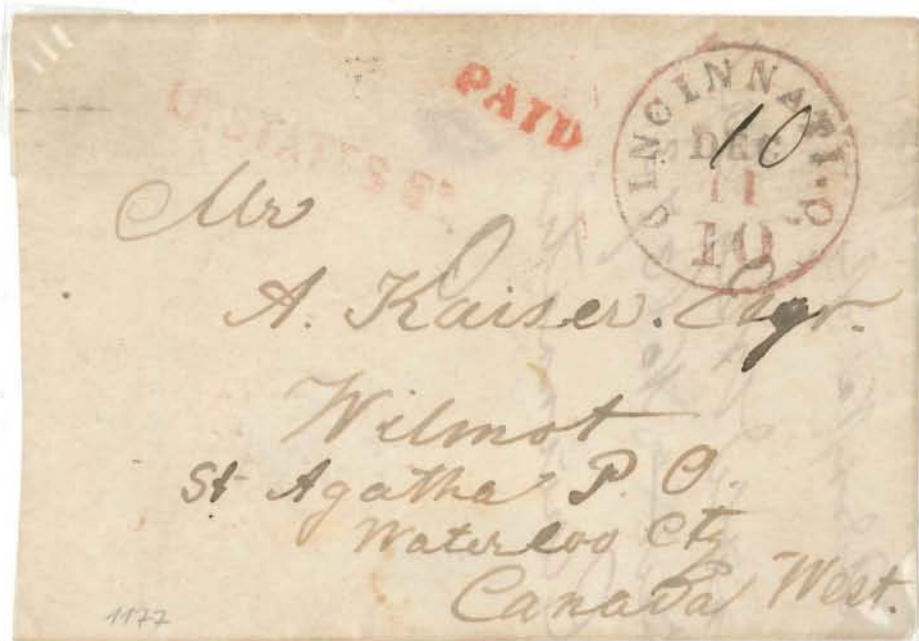 PAID
U. STATES
CINCINNATI. O.
10
DEC
11
10
Mr
A. Kaiser. Esqr.
Wilmot
St Agatha P. O.
Waterloo Cty
Canada West.
1177